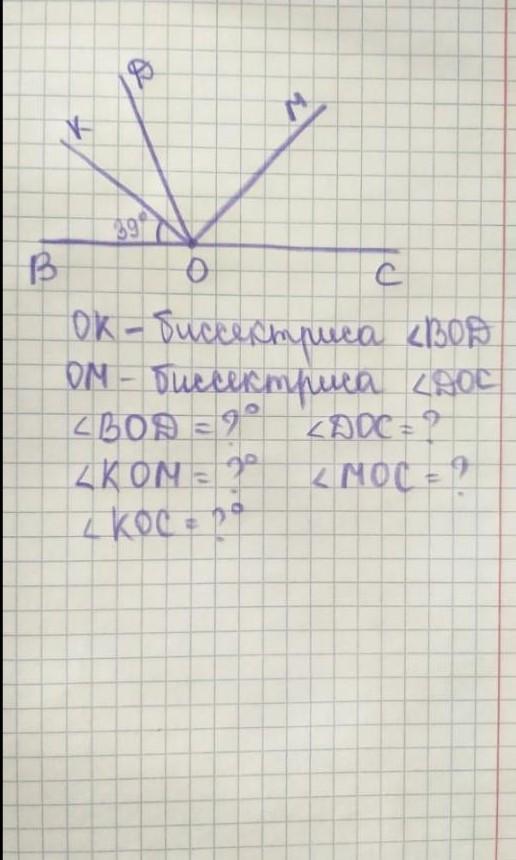 D
K
M
39°
B
O
C
OK - биссектриса ∠BOD
OM - биссектриса ∠DOC
∠BOD = ?° ∠DOC = ?
∠KOM = ?° ∠MOC = ?
∠KOC = ?°